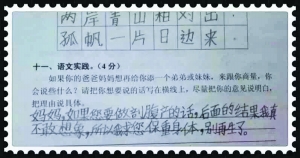 两岸青山相对出，
孤帆一片日边来．
十一、语文实践。（4分）
如果你的爸爸妈妈想再给你添一个弟弟或妹妹，来跟你商量，你
会说些什么？请把你想要说的话写在横线上，尽量把你的意见说明白，
把理由说具体。
妈妈，如果您要做剖腹产的话，后面的结果我真
不敢想象，所以求您保重身体，别再生了。